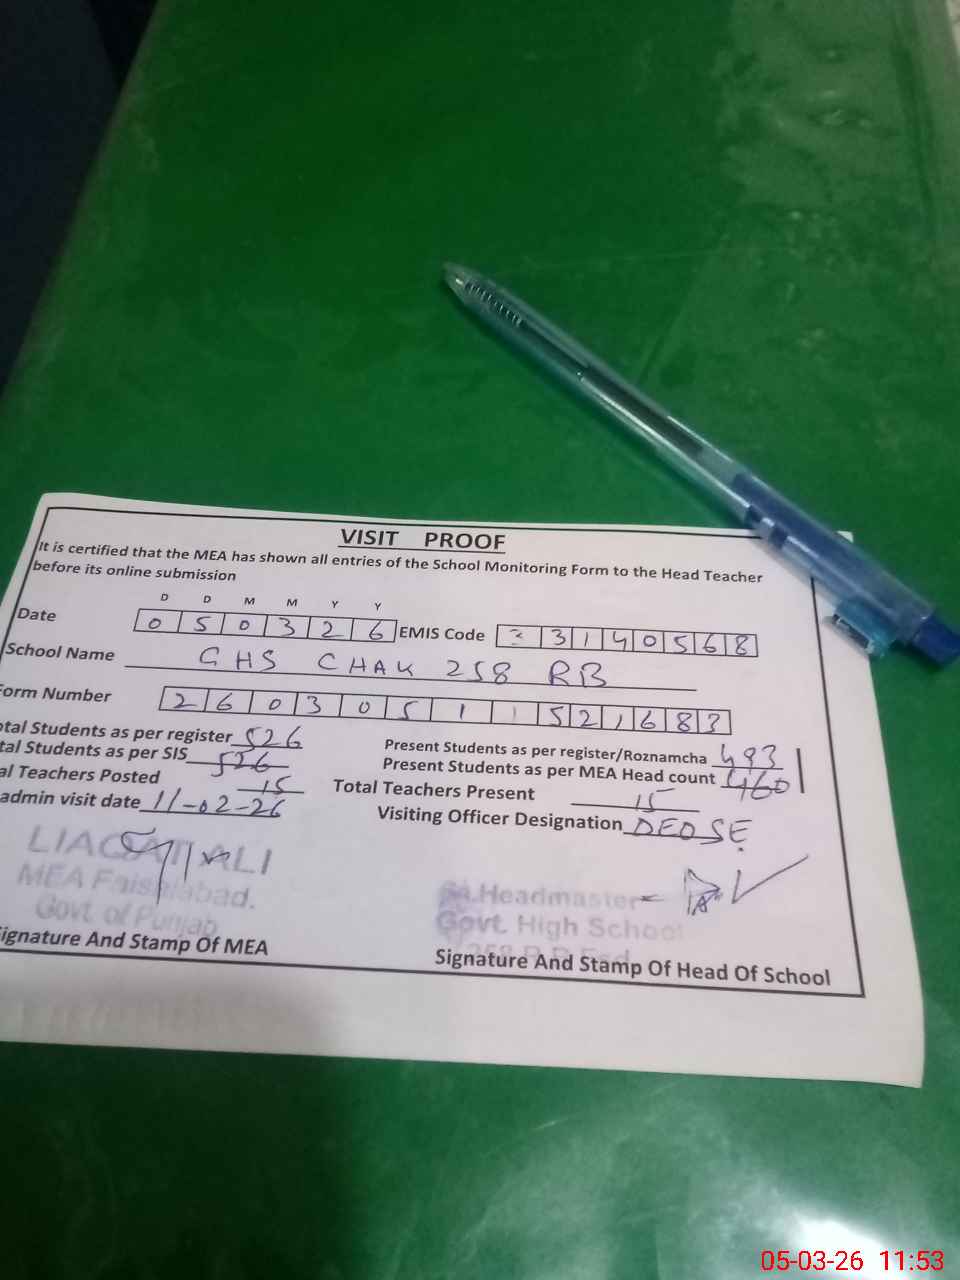 VISIT PROOF
It is certified that the MEA has shown all entries of the School Monitoring Form to the Head Teacher
before its online submission
D D M M Y Y
Date 0 5 0 3 2 6 EMIS Code 3 3 1 4 0 5 6 8
School Name GHS CHAK 258 RB
orm Number 2 6 0 3 0 5 1 1 5 2 1 6 8 3
otal Students as per register 526 Present Students as per register/Roznamcha 493
tal Students as per SIS 526 Present Students as per MEA Head count 460
al Teachers Posted 15 Total Teachers Present 15
admin visit date 11-02-26 Visiting Officer Designation DEO SE.
LIAQAT ALI
MEA Faisalabad.
Govt. of Punjab
Headmaster
Govt. High School
258 R.B Fsd
ignature And Stamp Of MEA Signature And Stamp Of Head Of School
05-03-26 11:53